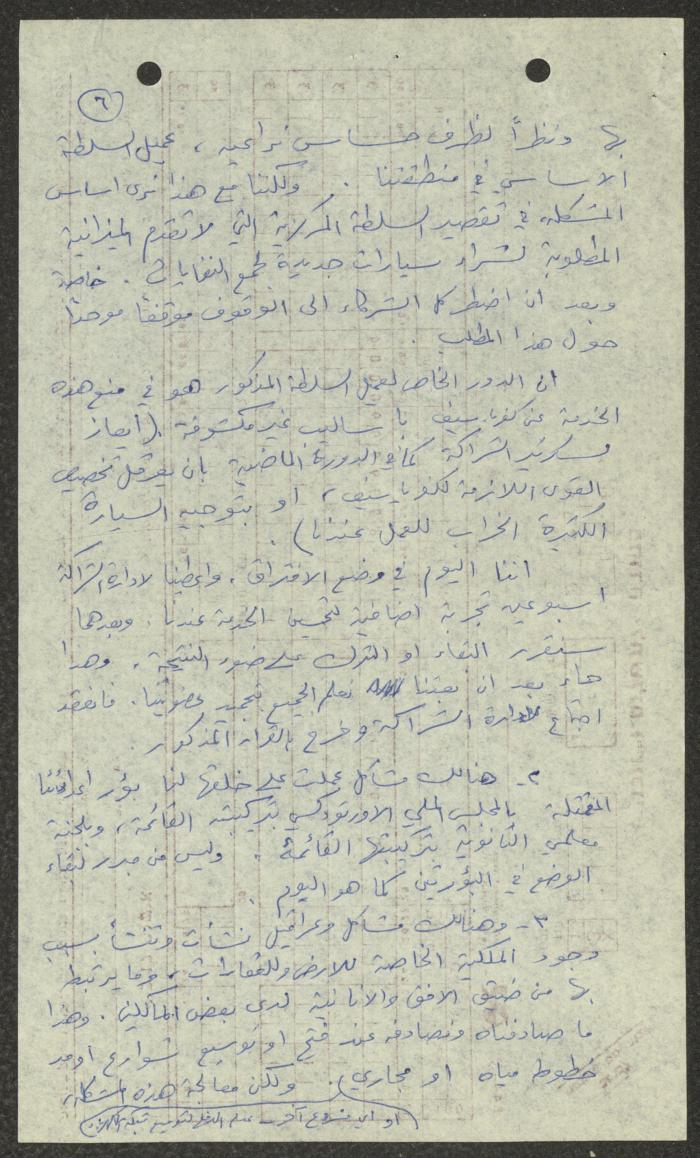 ٦
بها ونظراً لظرف حساس نراعيه، عميل السلطة
الاساسي في منطقتنا. ولكننا مع هذا نرى اساس
المشكلة في تقصير السلطة المركزية التي لا تقدم الميزانية
المطلوبة لشراء سيارات جديدة لجمع النفايات. خاصة
وبعد ان اضطر كل الشركاء الى الوقوف موقفاً موحداً
حول هذا المطلب.
ان الدور الخاص لعميل السلطة المذكور هو في منع هذه
الخدمة عن كفرياسيف باساليب غير مكشوفة. (ايعاز
لسكرتير الشراكة كما في الدورة الماضية بان يعرقل تخصيص
القوى اللازمة لكفرياسيف، او بتوجيه السيارة
الكثيرة الخراب للعمل عندنا).
اننا اليوم في وضع الافتراق، واعطينا لادارة الشراكة
اسبوعين تجربة اضافية لتحسين الخدمة عندنا. وبعدهما
سنقرر البقاء او الترك على ضوء النتيجة. وهذا
جاء بعد ان بعثنا نعلم الجميع تجميد عضويتنا. فانعقد
اجتماع لادارة الشراكة وخرج بالقرار المذكور.
٢- هنالك مشاكل عملت على خلقها لنا بؤر اعدائنا
الممثلة بالمجلس الملي الاورثوذكسي بتركيبته القائمة، وبلجنة
معلمي الثانوية بتركيبتها القائمة. وليس من مبرر لبقاء
الوضع في البؤرتين كما هو اليوم.
٣- وهنالك مشاكل وعراقيل نشأت وتنشأ بسبب
وجود الملكية الخاصة للارض وللعقارات، وما يرتبط
بها من ضيق الافق والانانية لدى بعض المالكين. وهذا
ما صادفناه ونصادفه عند فتح او توسيع شوارع او مد
خطوط مياه او مجاري). ولكن معالجة هذه المشكلة
(او اي مشروع آخر لتوسيع شبكة الكهرباء)